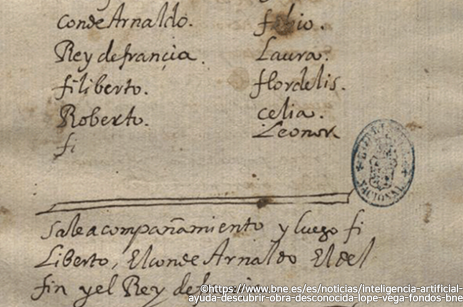 conde Arnaldo. fabio.
Rey de francia. Laura.
filiberto. flordelis.
Roberto. celia.
fi Leonor
Sale acompañamiento y luego fi
Liberto, El conde Arnaldo El del
fin y el Rey de
NACIONAL
©https://www.bne.es/es/noticias/inteligencia-artificial-
ayuda-descubrir-obra-desconocida-lope-vega-fondos-bne